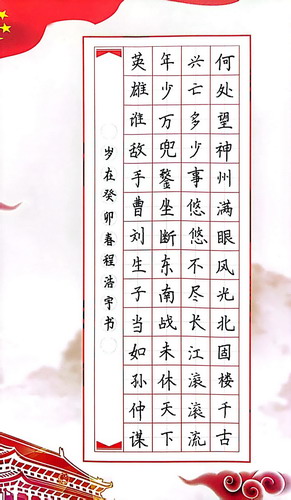 何处望神州满眼风光北固楼千古
兴亡多少事悠悠不尽长江滚滚流
年少万兜鍪坐断东南战未休天下
英雄谁敌手曹刘生子当如孙仲谋
岁在癸卯春程浩宇书